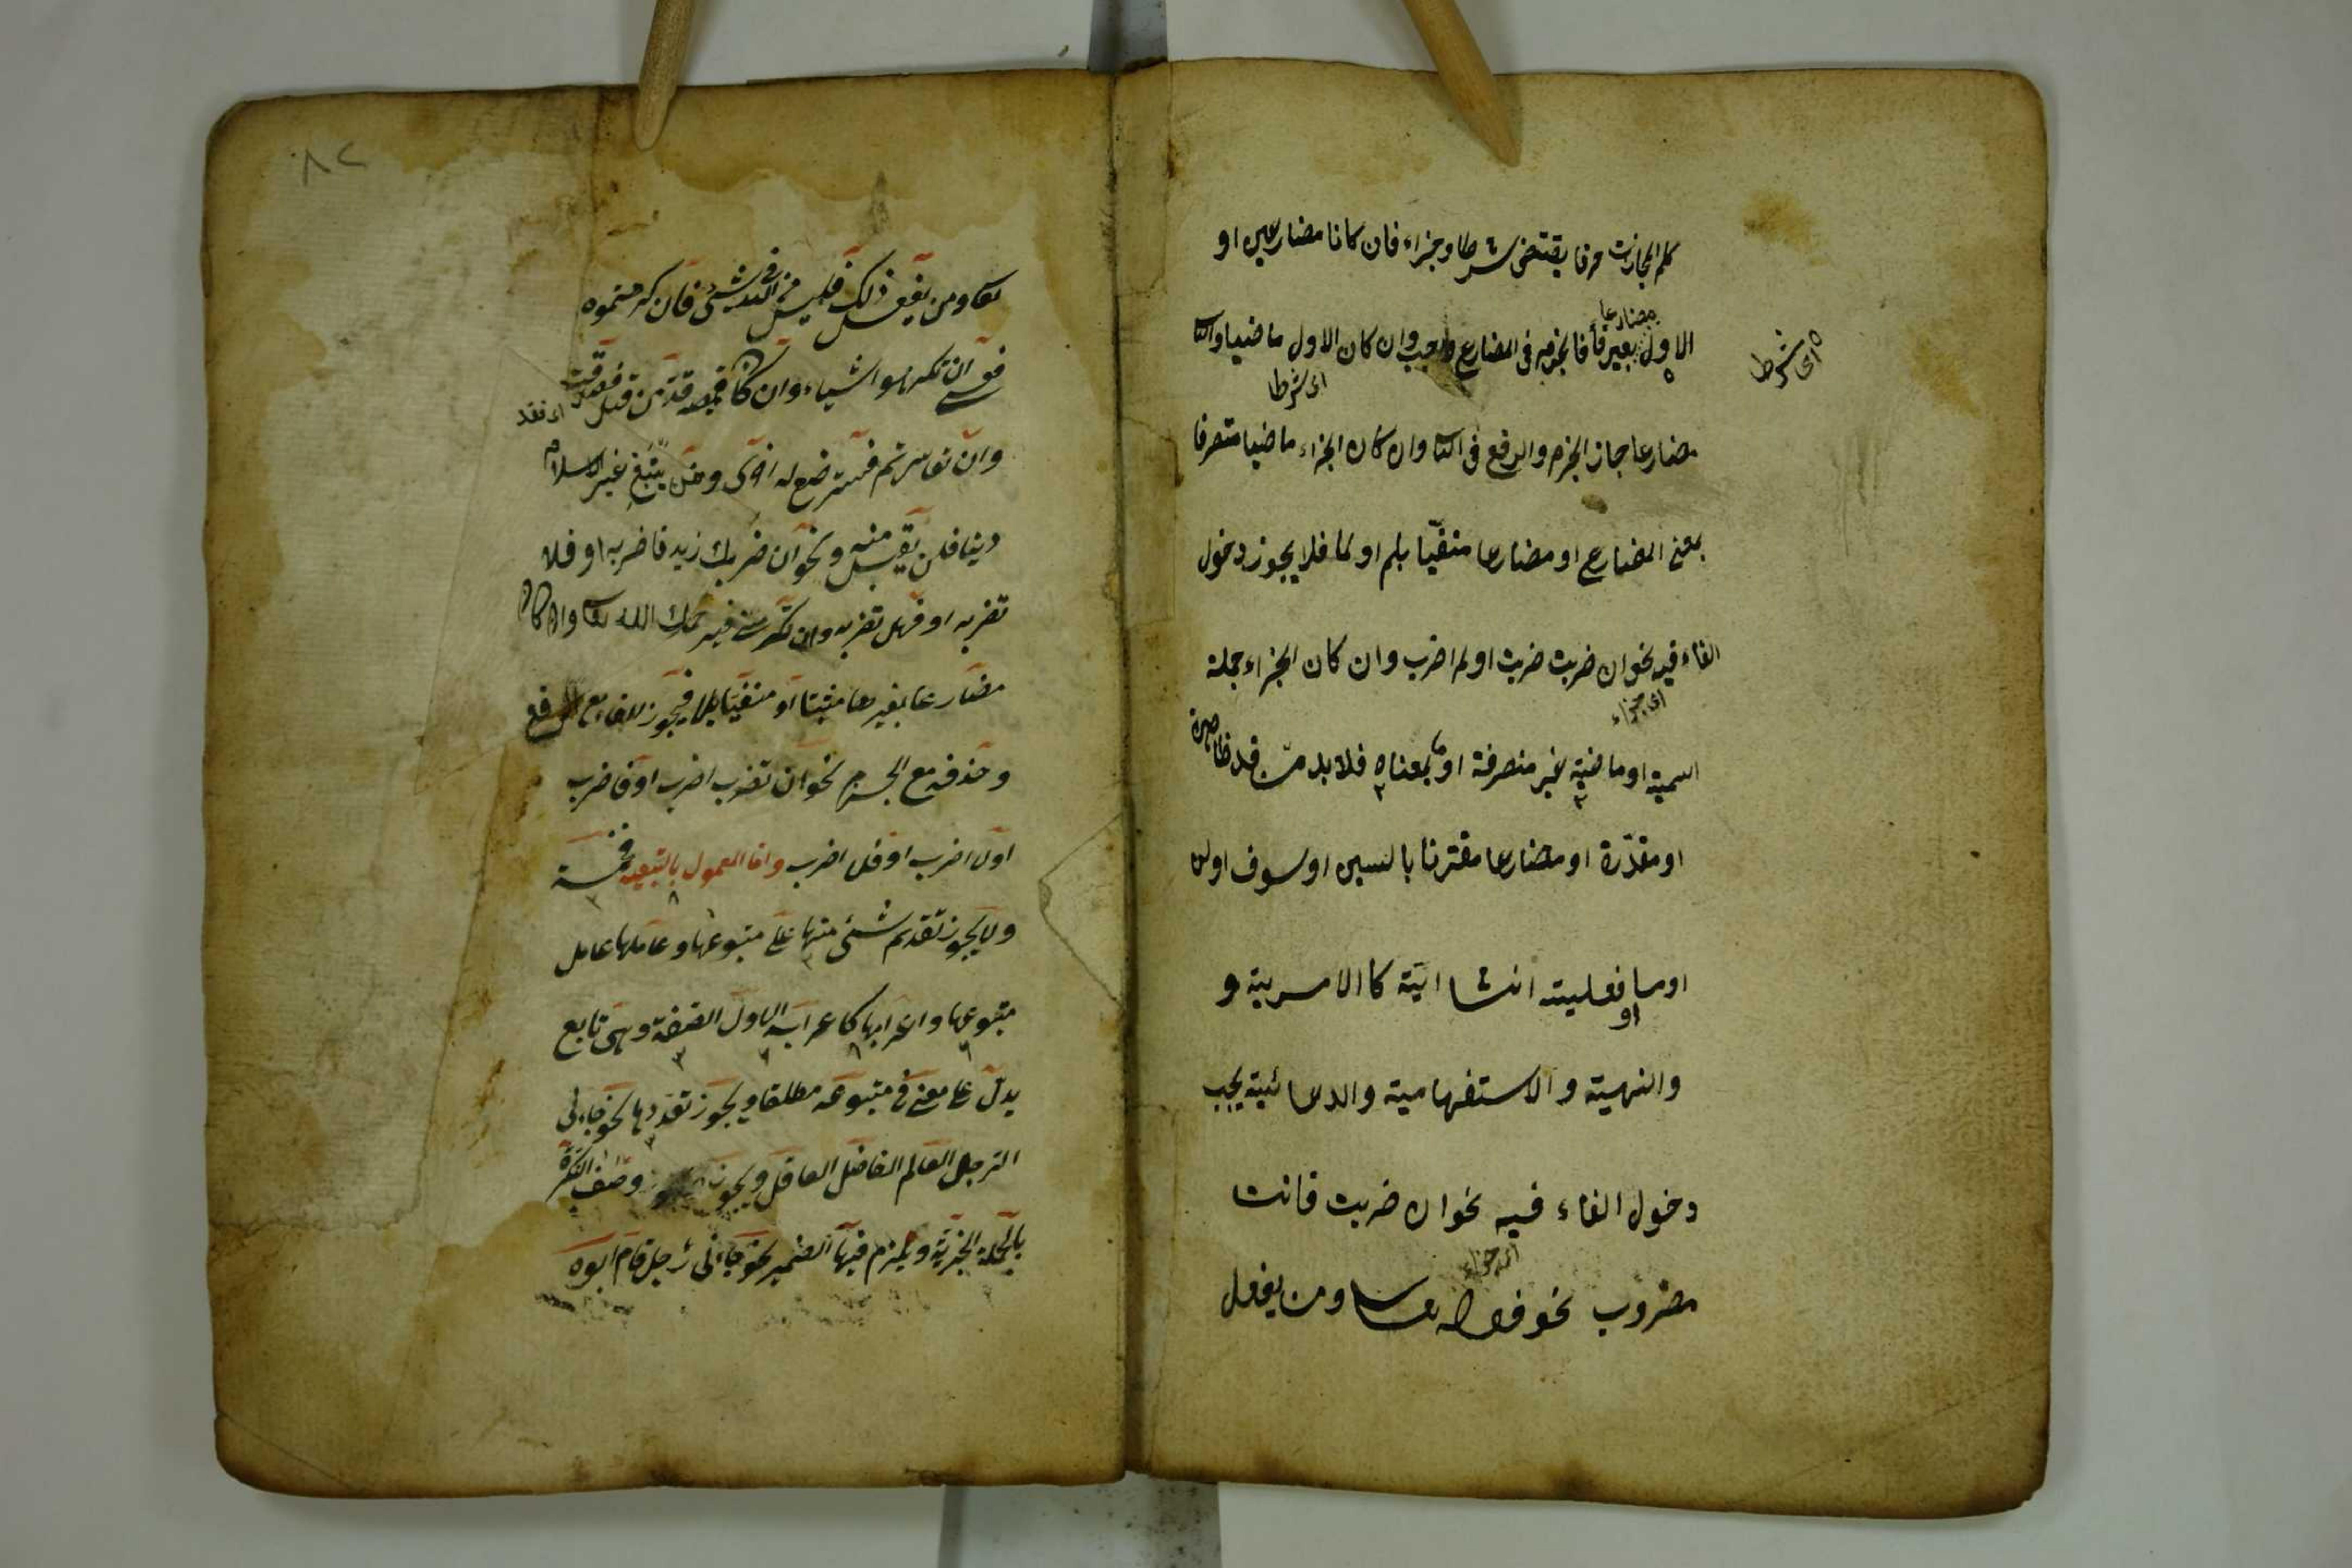 كلم المجازات مرفا يقتضى شرطا وجزاء فان كانا مضارعين او
مضارعا
الاول بغير فا فالجزم فى المضارع واجب وان كان الاول ماضيا والثا
اى شرط
اى شرطا
مضارعا جاز الجزم والرفع فى الثا وان كان الجزاء ماضيا متصرفا
بمعنى المضارع او مضارعا منفيّا بلم او لما فلا يجوز دخول
الفاء فيه نحو ان ضربت ضربت او لم اضرب وان كان الجزاء جملة
اى جزاء
اسمية او ماضية غير متصرفة او بمعناه فلا بد من قد ظاهرة
او مقدّرة او مضارعا مقترنا بالسين او سوف او لن
او ما فعليته انشائية كا الامرية و
او
والنهيية و الاستفهامية والدعائية يجب
دخول الفاء فيه نحو ان ضربت فانت
اى جزاء
مضروب نحو قوله تعا ومن يفعل
٨٢
تعا ومن يفعل ذلك فليس من الله فى شئ فان كرهتموه
فعسى ان تكرهوا شياء وان كان قميصه قد من قبل فصدقت
اى فقد
وان تعاسرتم فسترضع له اخرى ومن يبتغ غير الاسلام
دينا فلن يقبل منه ونحو ان ضربك زيد فاضربه او فلا
تضربه او فهل تضربه وان تكرمنى فيرحمك الله تعا وان كان
مضارعا بغيرها مثبتا او منفيّا بلا فيجوز الفاء مع الرفع
وحذفه مع الجزم نحو ان تضرب اضرب او فاضرب
او لا اضرب او فلا اضرب واما المعمول بالتبعية فخمسة
ولا يجوز تقديم شئ منها على متبوعها وعاملها عامل
متبوعها واعرابها كاعرابه الاول الصفة وهى تابع
يدل على معنى فى متبوعه مطلقا ويجوز تعددها نحو جاءنى
الرجل العالم الفاضل العاقل ويجوز وصف النكرة
بالجملة الخبرية ويلزم فيها الضمير نحو جاءنى رجل قام ابوه